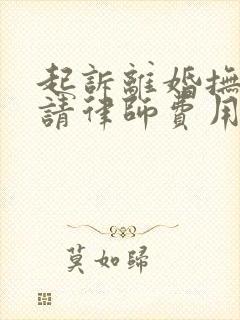 起訴離婚撫
請律師費用
莫如歸